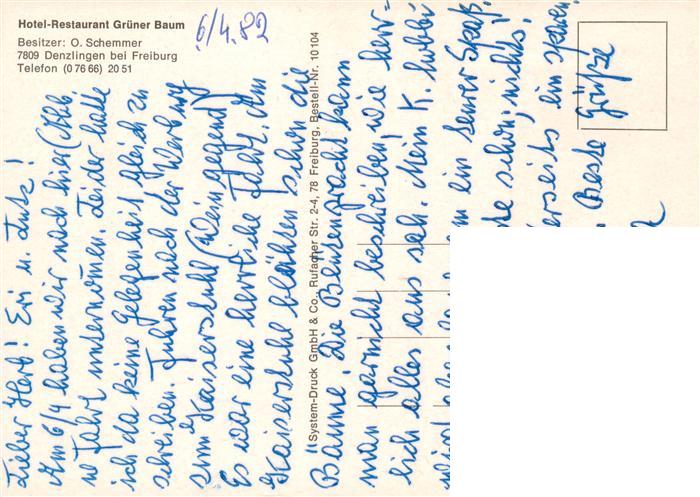 Hotel-Restaurant Grüner Baum
Besitzer: O. Schemmer
7809 Denzlingen bei Freiburg
Telefon (0 76 66) 20 51
6/4.82
Lieber Herb! Evi u. Lutz!
Am 6/4 haben wir nach hier (Abb.
ne Fahrt unternommen. Leider hatte
ich da keine Gelegenheit gleich zu
schreiben. Fuhren nach der Werbung
zum Kaiserstuhl (Weingegend)
Es war eine herrliche Fahrt. Am
Kaiserstuhl blühten schon die
Bäume. Die Blütenpracht kann
man garnicht beschreiben, wie herr-
lich alles aus sah. Mein K. hobbi
wird
ein teurer Spaß.
schon, nichts,
erseits ein sparen.
Beste Grüße
System-Druck GmbH & Co., Rufacher Str. 2-4, 78 Freiburg, Bestell-Nr. 10104